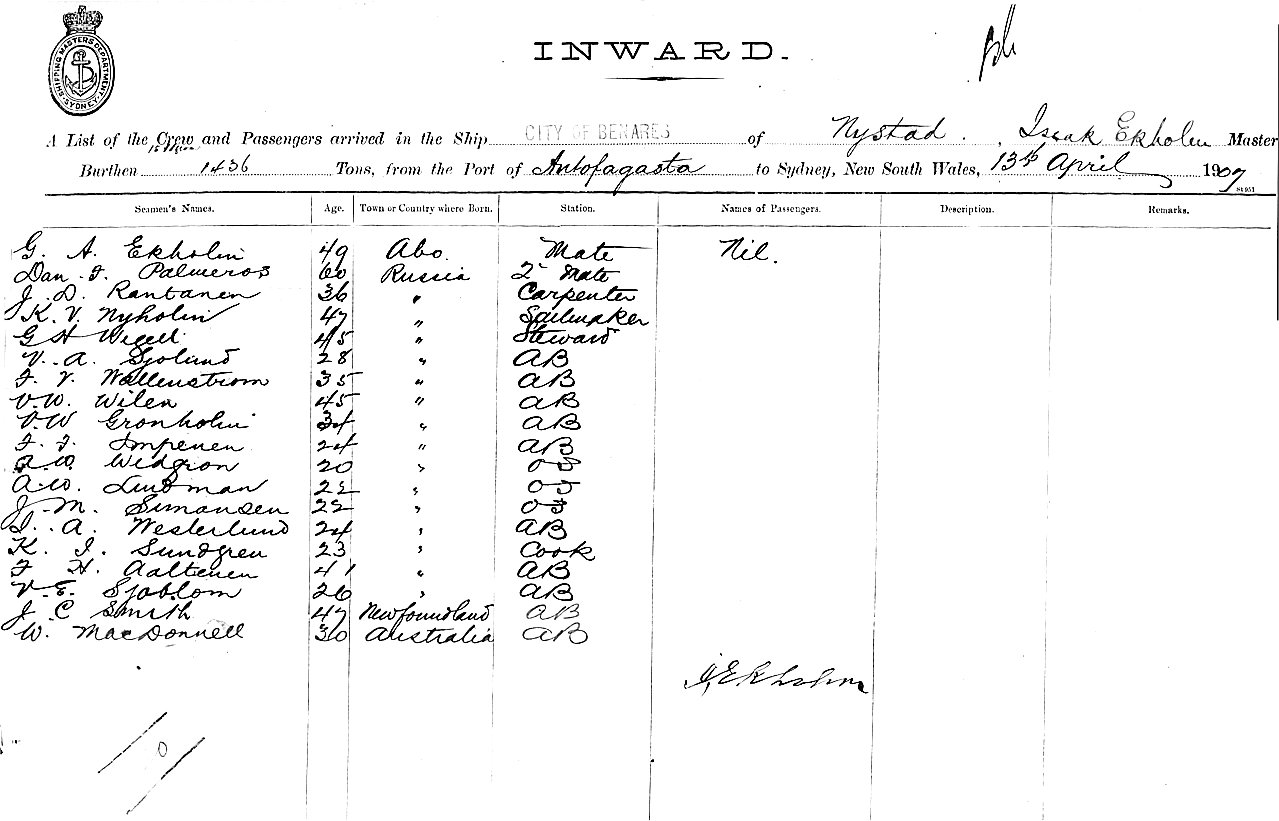 SHIPPING MASTERS DEPARTMENT
SYDNEY
INWARD.
A List of the Crew and Passengers arrived in the Ship CITY OF BENARES of Nystad. , Isaak Ekholm Master
Burthen 1436 Tons, from the Port of Antofagasta to Sydney, New South Wales, 13th April 1907
Seamen's Names. Age. Town or Country where Born. Station. Names of Passengers. Description. Remarks.
G. A. Ekholm 49 Abo. Mate Nil.
Dan. F. Palmeros 60 Russia 2" Mate
J. D. Rantanen 36 " Carpenter
K. V. Nyholm 47 " Sailmaker
G H Wigell 45 " Steward
V. A. Sjolund 28 " AB
F. V. Wallenstrom 35 " AB
V. W. Wilen 45 " AB
V W Gronholm 34 " AB
F. F. Impenen 24 " AB
A. W. Widgron 20 " OS
A. W. Lindman 22 " OS
J. M. Simonsen 22 " OS
I. A. Westerlund 24 " AB
K. I. Sundgren 23 " Cook
F H. Aaltenen 41 " AB
V. E. Sjoblom 26 " AB
J. C Smith 47 Newfoundland AB
W. MacDonnell 30 Australia AB
J. Ekholm
/ 0 /